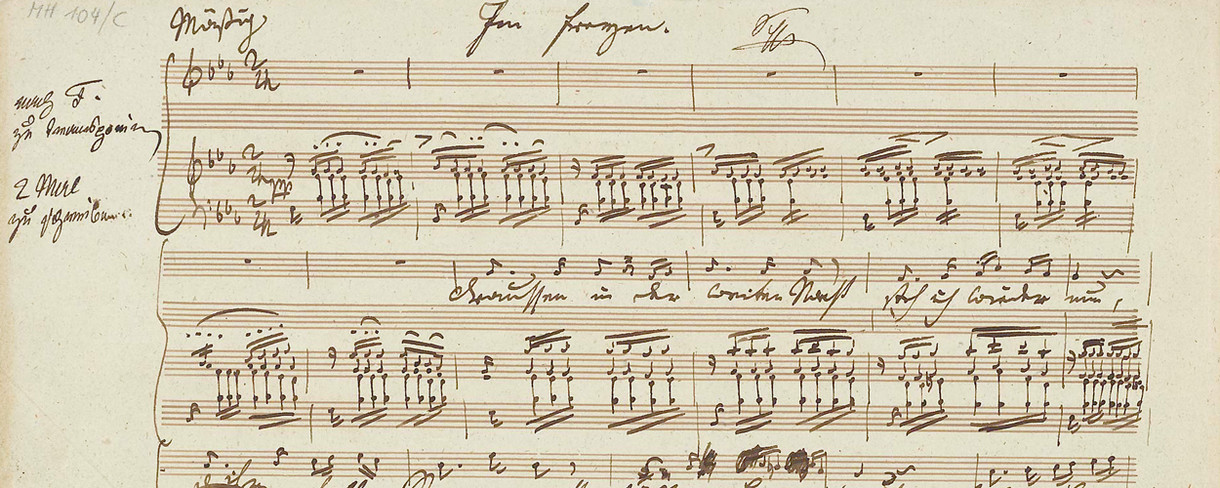 MH 104/C
Mäßig
Im Freyen.
nach F.
zu transponiren
2 Mal
zu schreiben
draussen in der weiten Nacht steh ich wieder nun,